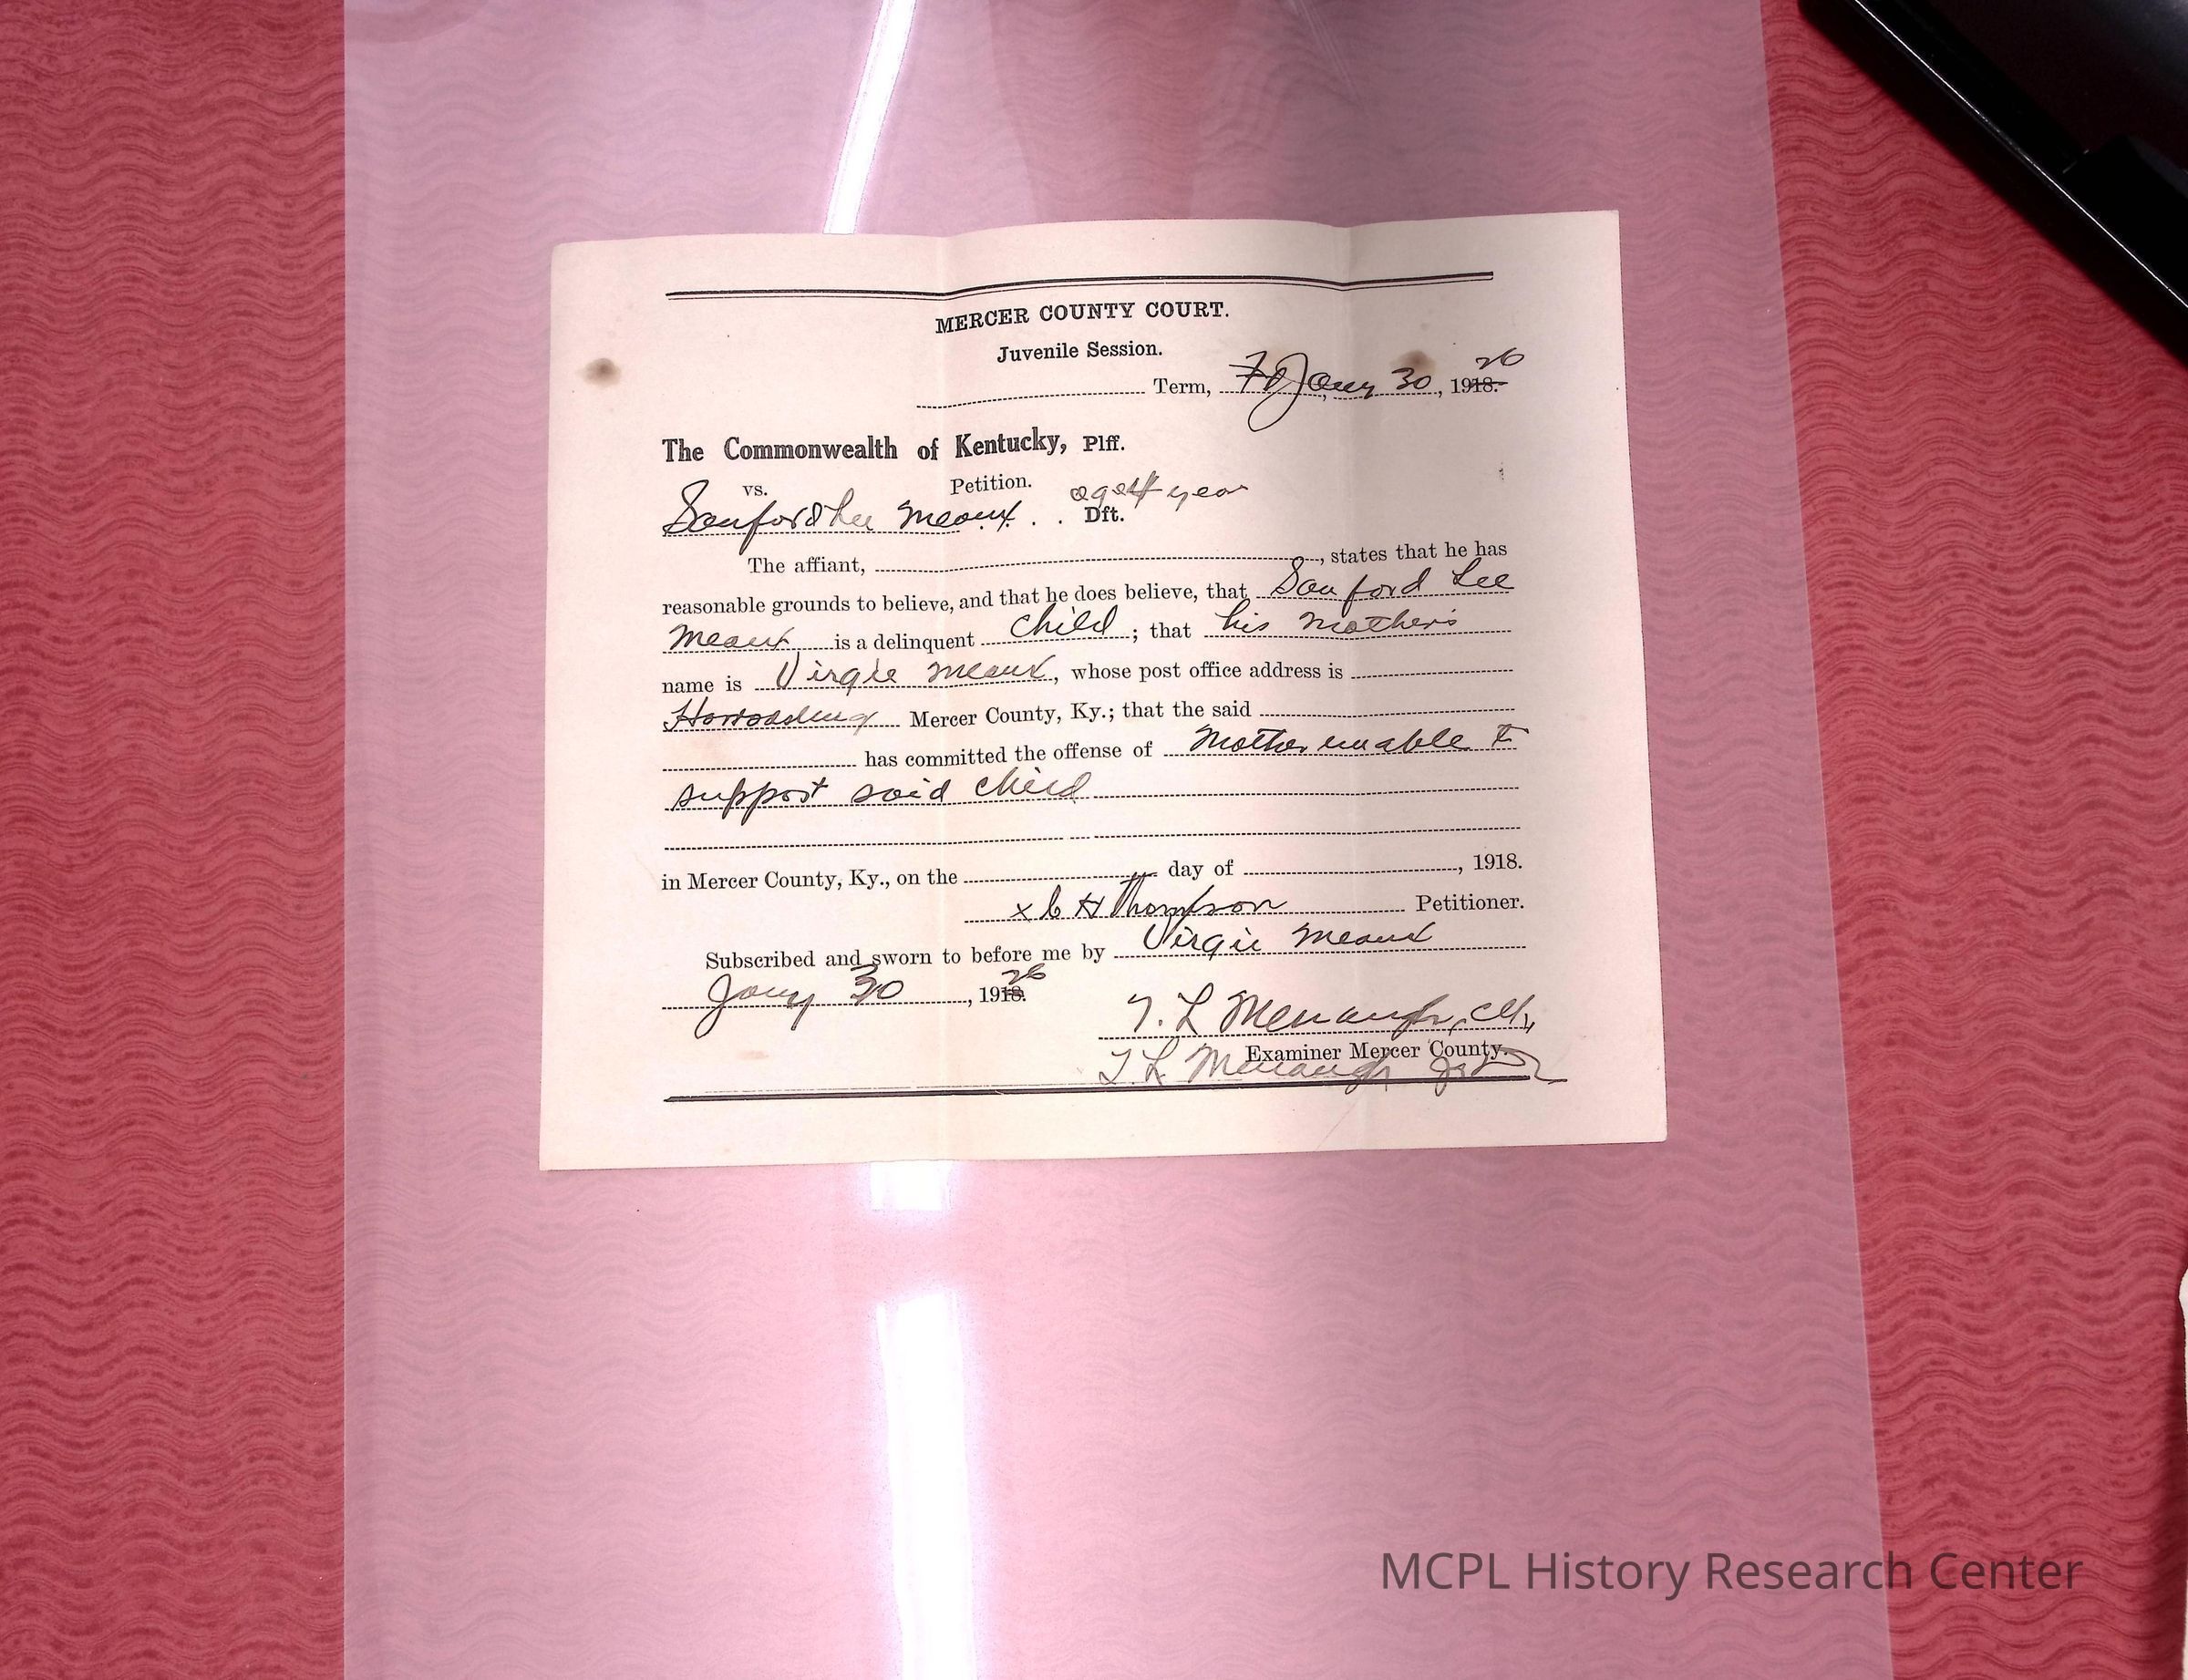 MERCER COUNTY COURT.
Juvenile Session.
26
Term, Jany 30, 1918.
The Commonwealth of Kentucky, Plff.
vs. Petition. age 4 year
Sanford Lee Meaux . . Dft.
The affiant, , states that he has
reasonable grounds to believe, and that he does believe, that Sanford Lee
Meaux is a delinquent child; that his Mothers
name is Virgie Meaux, whose post office address is
Harrodsburg Mercer County, Ky.; that the said
has committed the offense of Mother unable to
support said child
in Mercer County, Ky., on the day of , 1918.
x C H Thompson Petitioner.
Subscribed and sworn to before me by Virgie Meaux
26
Jany 30, 1918.
T. L Menaugh, Clk,
Examiner Mercer County.
T. L Menaugh
MCPL History Research Center